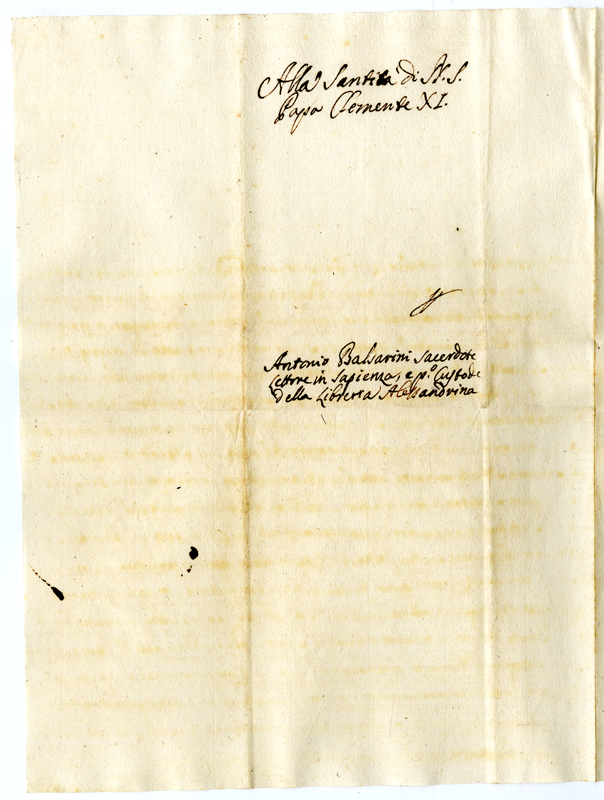 Alla Santità di N. S.
Papa Clemente XI.
Antonio Balsarini Sacerdote
Lettore in Sapienza, e p.º Custode
della Libreria Alessandrina